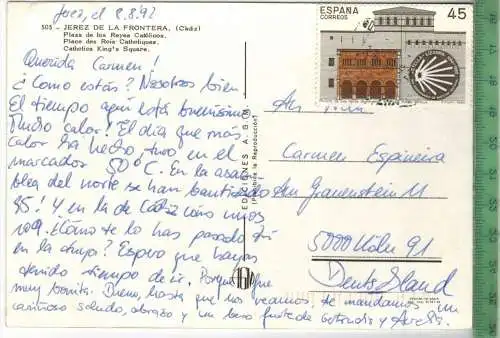 Jerez, el 8.8.92
505 - JEREZ DE LA FRONTERA. (Cádiz)
Plaza de los Reyes Católicos.
Place des Rois Catholiques.
Catholics King's Square.
Querida Carmen!
¿Como estás? Nosotros bien
El tiempo aquí está buenísimo
Mucho calor! El día que más
calor ha hecho, tuvo en el
marcador 50°C. En la
del norte se han bautizado
85! Y en la de Cádiz unos
109. ¿Cómo te lo has pasado tú
en la ? Espero que hayas
tenido tiempo de ir. Porque que
muy bonita. Bueno, hasta que nos veamos te mandamos un
cariñoso saludo, abrazo y un beso fuerte de y
EDICIONES A.G.M.
(Prohibida la Reproducción)
ESPAÑA
CORREOS
45
An
Carmen Espineira
Am Grauenstein 11
5000 Köln 91
Deutschland